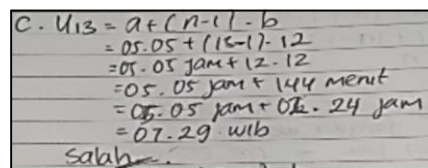 C. U13 = a + (n-1). b
= 05.05 + (13-1). 12
= 05.05 jam + 12.12
= 05.05 jam + 144 menit
= 05.05 jam + 02.24 jam
= 07.29 wib
Salah